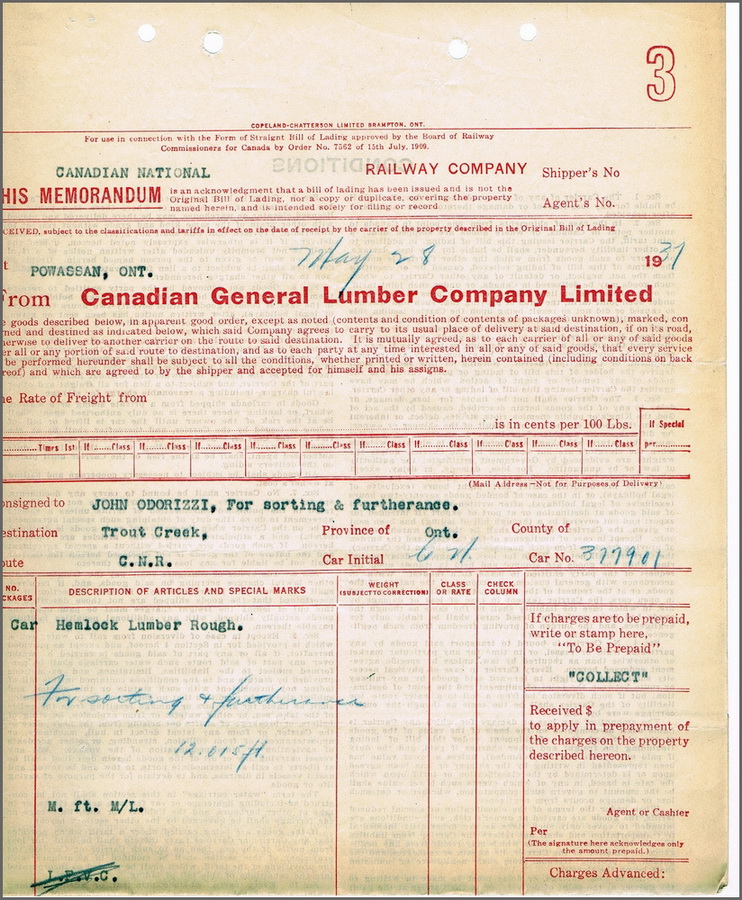 3
COPELAND-CHATTERSON LIMITED BRAMPTON, ONT.
For use in connection with the Form of Straight Bill of Lading approved by the Board of Railway
Commissioners for Canada by Order No. 7562 of 15th July, 1909.
CANADIAN NATIONAL RAILWAY COMPANY
Shipper's No
HIS MEMORANDUM
is an acknowledgment that a bill of lading has been issued and is not the
Original Bill of Lading, nor a copy or duplicate, covering the property
named herein, and is intended solely for filing or record
Agent's No.
CEIVED, subject to the classifications and tariffs in effect on the date of receipt by the carrier of the property described in the Original Bill of Lading
t POWASSAN, ONT. May 28 1931
rom Canadian General Lumber Company Limited
e goods described below, in apparent good order, except as noted (contents and condition of contents of packages unknown), marked, con
ned and destined as indicated below, which said Company agrees to carry to its usual place of delivery at said destination, if on its road,
erwise to deliver to another carrier on the route to said destination. It is mutually agreed, as to each carrier of all or any of said goods
er all or any portion of said route to destination, and as to each party at any time interested in all or any of said goods, that every service
be performed hereunder shall be subject to all the conditions, whether printed or written, herein contained (including conditions on back
reof) and which are agreed to by the shipper and accepted for himself and his assigns.
he Rate of Freight from
is in cents per 100 Lbs.
If Special
per
Times 1st If Class If Class If Class If Class If Class If Class If Class If Class If Class If Class
(Mail Address—Not for Purposes of Delivery)
onsigned to JOHN ODORIZZI, For sorting & furtherance.
estination Trout Creek, Province of Ont. County of
oute C.N.R. Car Initial C N. Car No. 377901
NO.
CKAGES
DESCRIPTION OF ARTICLES AND SPECIAL MARKS
WEIGHT
(SUBJECT TO CORRECTION)
CLASS
OR RATE
CHECK
COLUMN
Car Hemlock Lumber Rough.
For sorting & furtherance
12.015 ft
M. ft. M/L.
If charges are to be prepaid,
write or stamp here,
"To Be Prepaid"
"COLLECT"
Received $
to apply in prepayment of
the charges on the property
described hereon.
Agent or Cashier
Per
(The signature here acknowledges only
the amount prepaid.)
Charges Advanced: